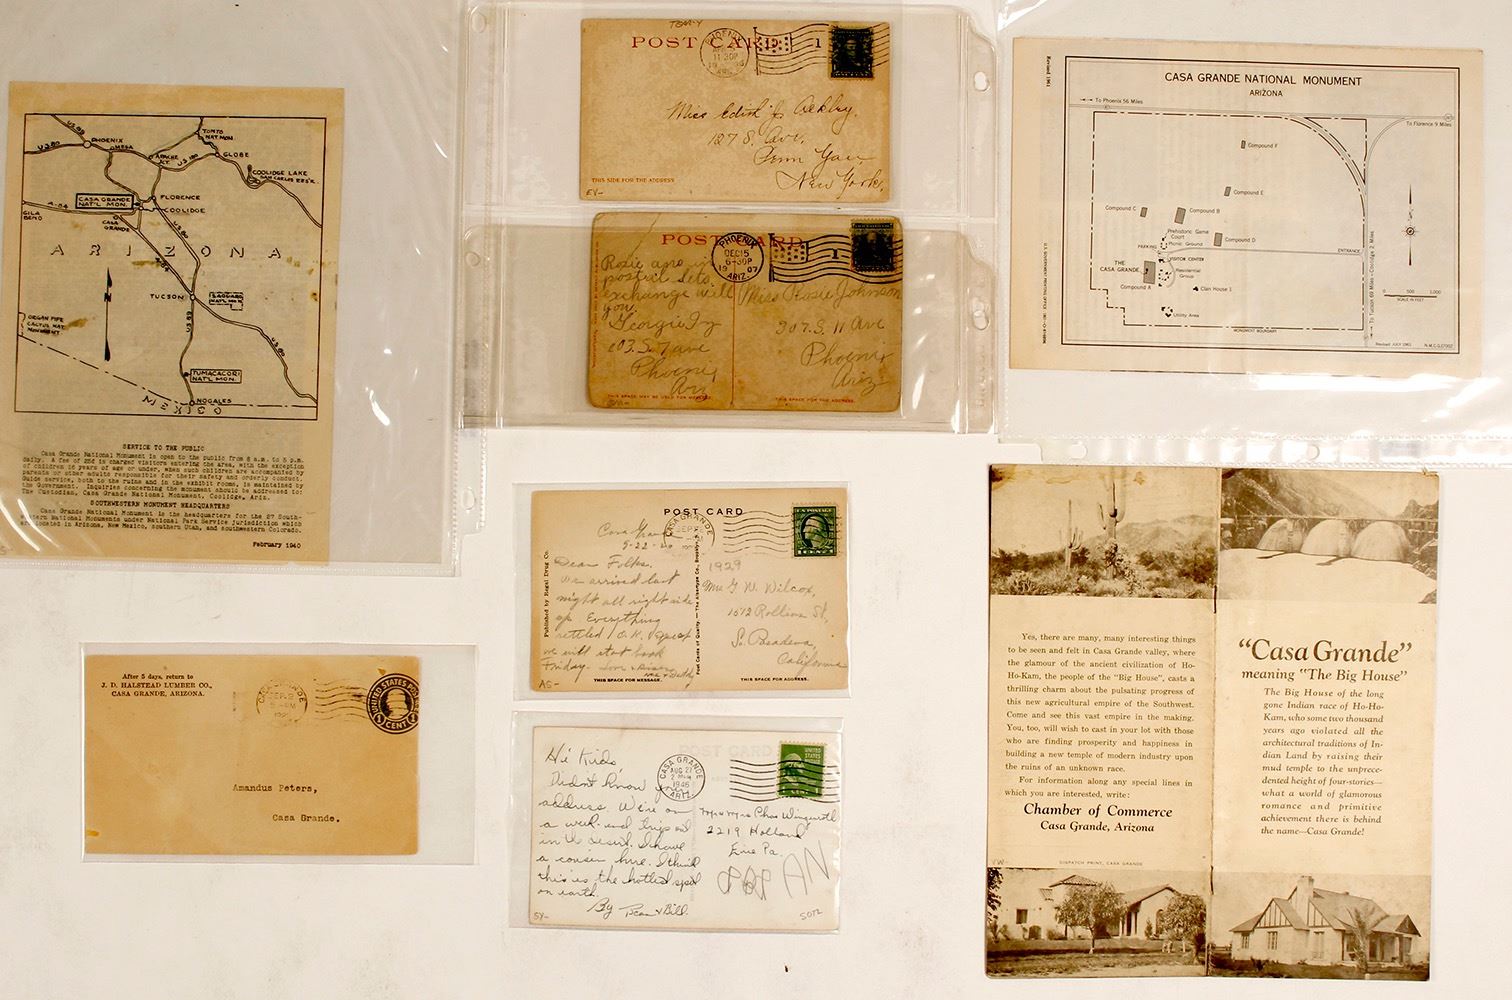 US 89
PHOENIX
US 80
MESA
TONTO
NAT. MON.
APACHE
JCT.
US 180
GLOBE
COOLIDGE LAKE
SAN CARLOS RES'R.
CASA GRANDE
NAT'L MON.
FLORENCE
COOLIDGE
A-84
GILA
BEND
CASA
GRANDE
US 80
ARIZONA
A-84
N
TUCSON
SAGUARO
NAT'L MON.
US 89
US 80
ORGAN PIPE
CACTUS NAT.
MONUMENT
TUMACACORI
NAT'L MON.
NOGALES
MEXICO
SERVICE TO THE PUBLIC
Casa Grande National Monument is open to the public from 8 a.m. to 5 p.m.
daily. A fee of 25¢ is charged visitors entering the area, with the exception
of children 16 years of age or under, when such children are accompanied by
parents or other adults responsible for their safety and orderly conduct.
Guide service, both to the ruins and in the exhibit rooms, is maintained by
the Government. Inquiries concerning the monument should be addressed to:
The Custodian, Casa Grande National Monument, Coolidge, Ariz.
SOUTHWESTERN MONUMENT HEADQUARTERS
Casa Grande National Monument is the headquarters for the 27 South-
western National Monuments under National Park Service jurisdiction which
are located in Arizona, New Mexico, southern Utah, and southwestern Colorado.
February 1940
After 5 days, return to
J. D. HALSTEAD LUMBER CO.,
CASA GRANDE, ARIZONA.
CASA GRANDE
SEP 2
UNITED STATES POSTAGE
CENT
Amandus Peters,
Casa Grande.
POST CARD
PHOENIX
11 30P
ARIZ.
1
Miss Edith J. Ackley.
127 S. Ave.
Penn Yan
New York.
THIS SIDE FOR THE ADDRESS
EY-
POST CARD
PHOENIX
DEC 15
6-30P
1907
ARIZ.
1
exchange will
you.
103. S. 7 ave
Phoenix,
Ari
Miss Rosie Johnson
307. S. 11 Ave
Phoenix
Ariz
THIS SPACE MAY BE USED FOR MESSAGE
THIS SPACE FOR THE ADDRESS.
POST CARD
CASA GRANDE
SEP 22
U.S. POSTAGE
1 CENT 1
Casa Grande
9-22-
Dear Folks.
We arrived last
night all right side
up. Everything
settled O.K. Guess
we will start back
Friday.
1929
Mrs G. W. Wilcox,
1512 Rollin St,
So. Pasadena,
California
Published by Regal Drug Co.
Post Cards of Quality. — The Albertype Co., Brooklyn, N.Y.
AS-
THIS SPACE FOR MESSAGE.
THIS SPACE FOR ADDRESS.
POST CARD
CASA GRANDE
AUG 21
1946
ARIZ.
UNITED STATES
Hi Kids,
Didn't know your
address. We're on
a week-end trip out
in the desert. I have
a cousin here. I think
this is the hottest spot
on earth.
By Jean & Bill.
Mr & Mrs Chas Wingerott
2219 Holland
Erie Pa.
SY-
5072
Revised 1961
CASA GRANDE NATIONAL MONUMENT
ARIZONA
To Phoenix 56 Miles
To Florence 9 Miles
Compound F
Compound E
Compound C
Compound B
Prehistoric Game
Court
Picnic Ground
Compound D
PARKING
VISITOR CENTER
ENTRANCE
THE
CASA GRANDE
Residential
Group
Compound A
Clan House 1
Utility Area
MONUMENT BOUNDARY
To Tucson 69 Miles - Coolidge 2 Miles
0 500 1,000
SCALE IN FEET
Revised JULY 1961
N.M.C.G.27002
Yes, there are many, many interesting things
to be seen and felt in Casa Grande valley, where
the glamour of the ancient civilization of Ho-
Ho-Kam, the people of the "Big House", casts a
thrilling charm about the pulsating progress of
this new agricultural empire of the Southwest.
Come and see this vast empire in the making.
You, too, will wish to cast in your lot with those
who are finding prosperity and happiness in
building a new temple of modern industry upon
the ruins of an unknown race.
For information along any special lines in
which you are interested, write:
Chamber of Commerce
Casa Grande, Arizona
DISPATCH PRINT, CASA GRANDE
VW-
"Casa Grande"
meaning "The Big House"
The Big House of the long
gone Indian race of Ho-Ho-
Kam, who some two thousand
years ago violated all the
architectural traditions of In-
dian Land by raising their
mud temple to the unprece-
dented height of four-stories—
what a world of glamorous
romance and primitive
achievement there is behind
the name—Casa Grande!